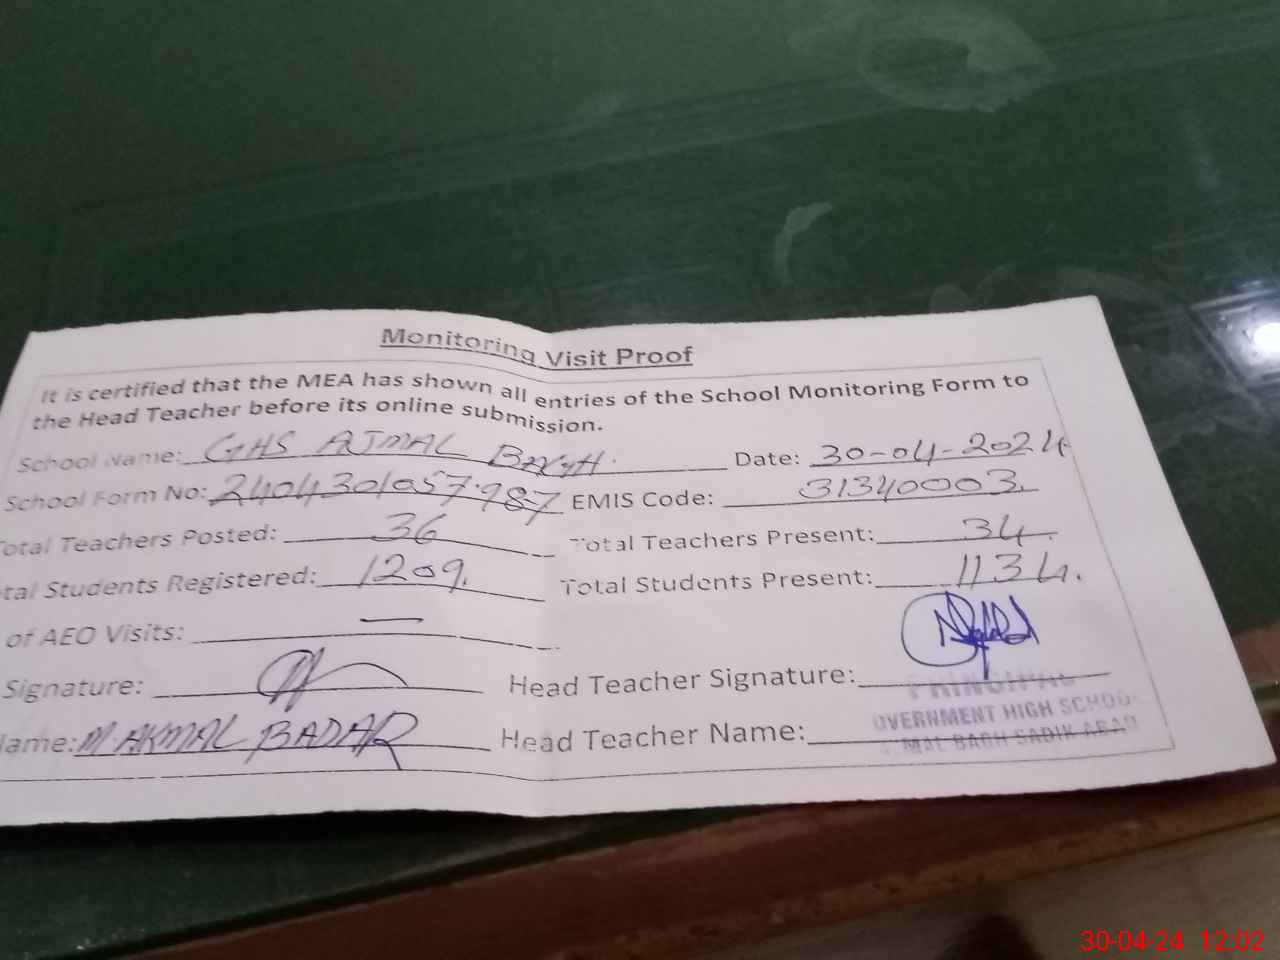 Monitoring Visit Proof
It is certified that the MEA has shown all entries of the School Monitoring Form to
the Head Teacher before its online submission.
School Name: GHS AJMAL BAGH. Date: 30-04-2024
School Form No: 2404301057987 EMIS Code: 31340003.
otal Teachers Posted: 36 Total Teachers Present: 34.
tal Students Registered: 1209. Total Students Present: 1134.
of AEO Visits: —
Signature: Head Teacher Signature:
PRINCIPAL
OVERNMENT HIGH SCHOO
lame: M. AKMAL BADAR Head Teacher Name:
MAL BAGH SADIK ABAD
30-04-24 12:02